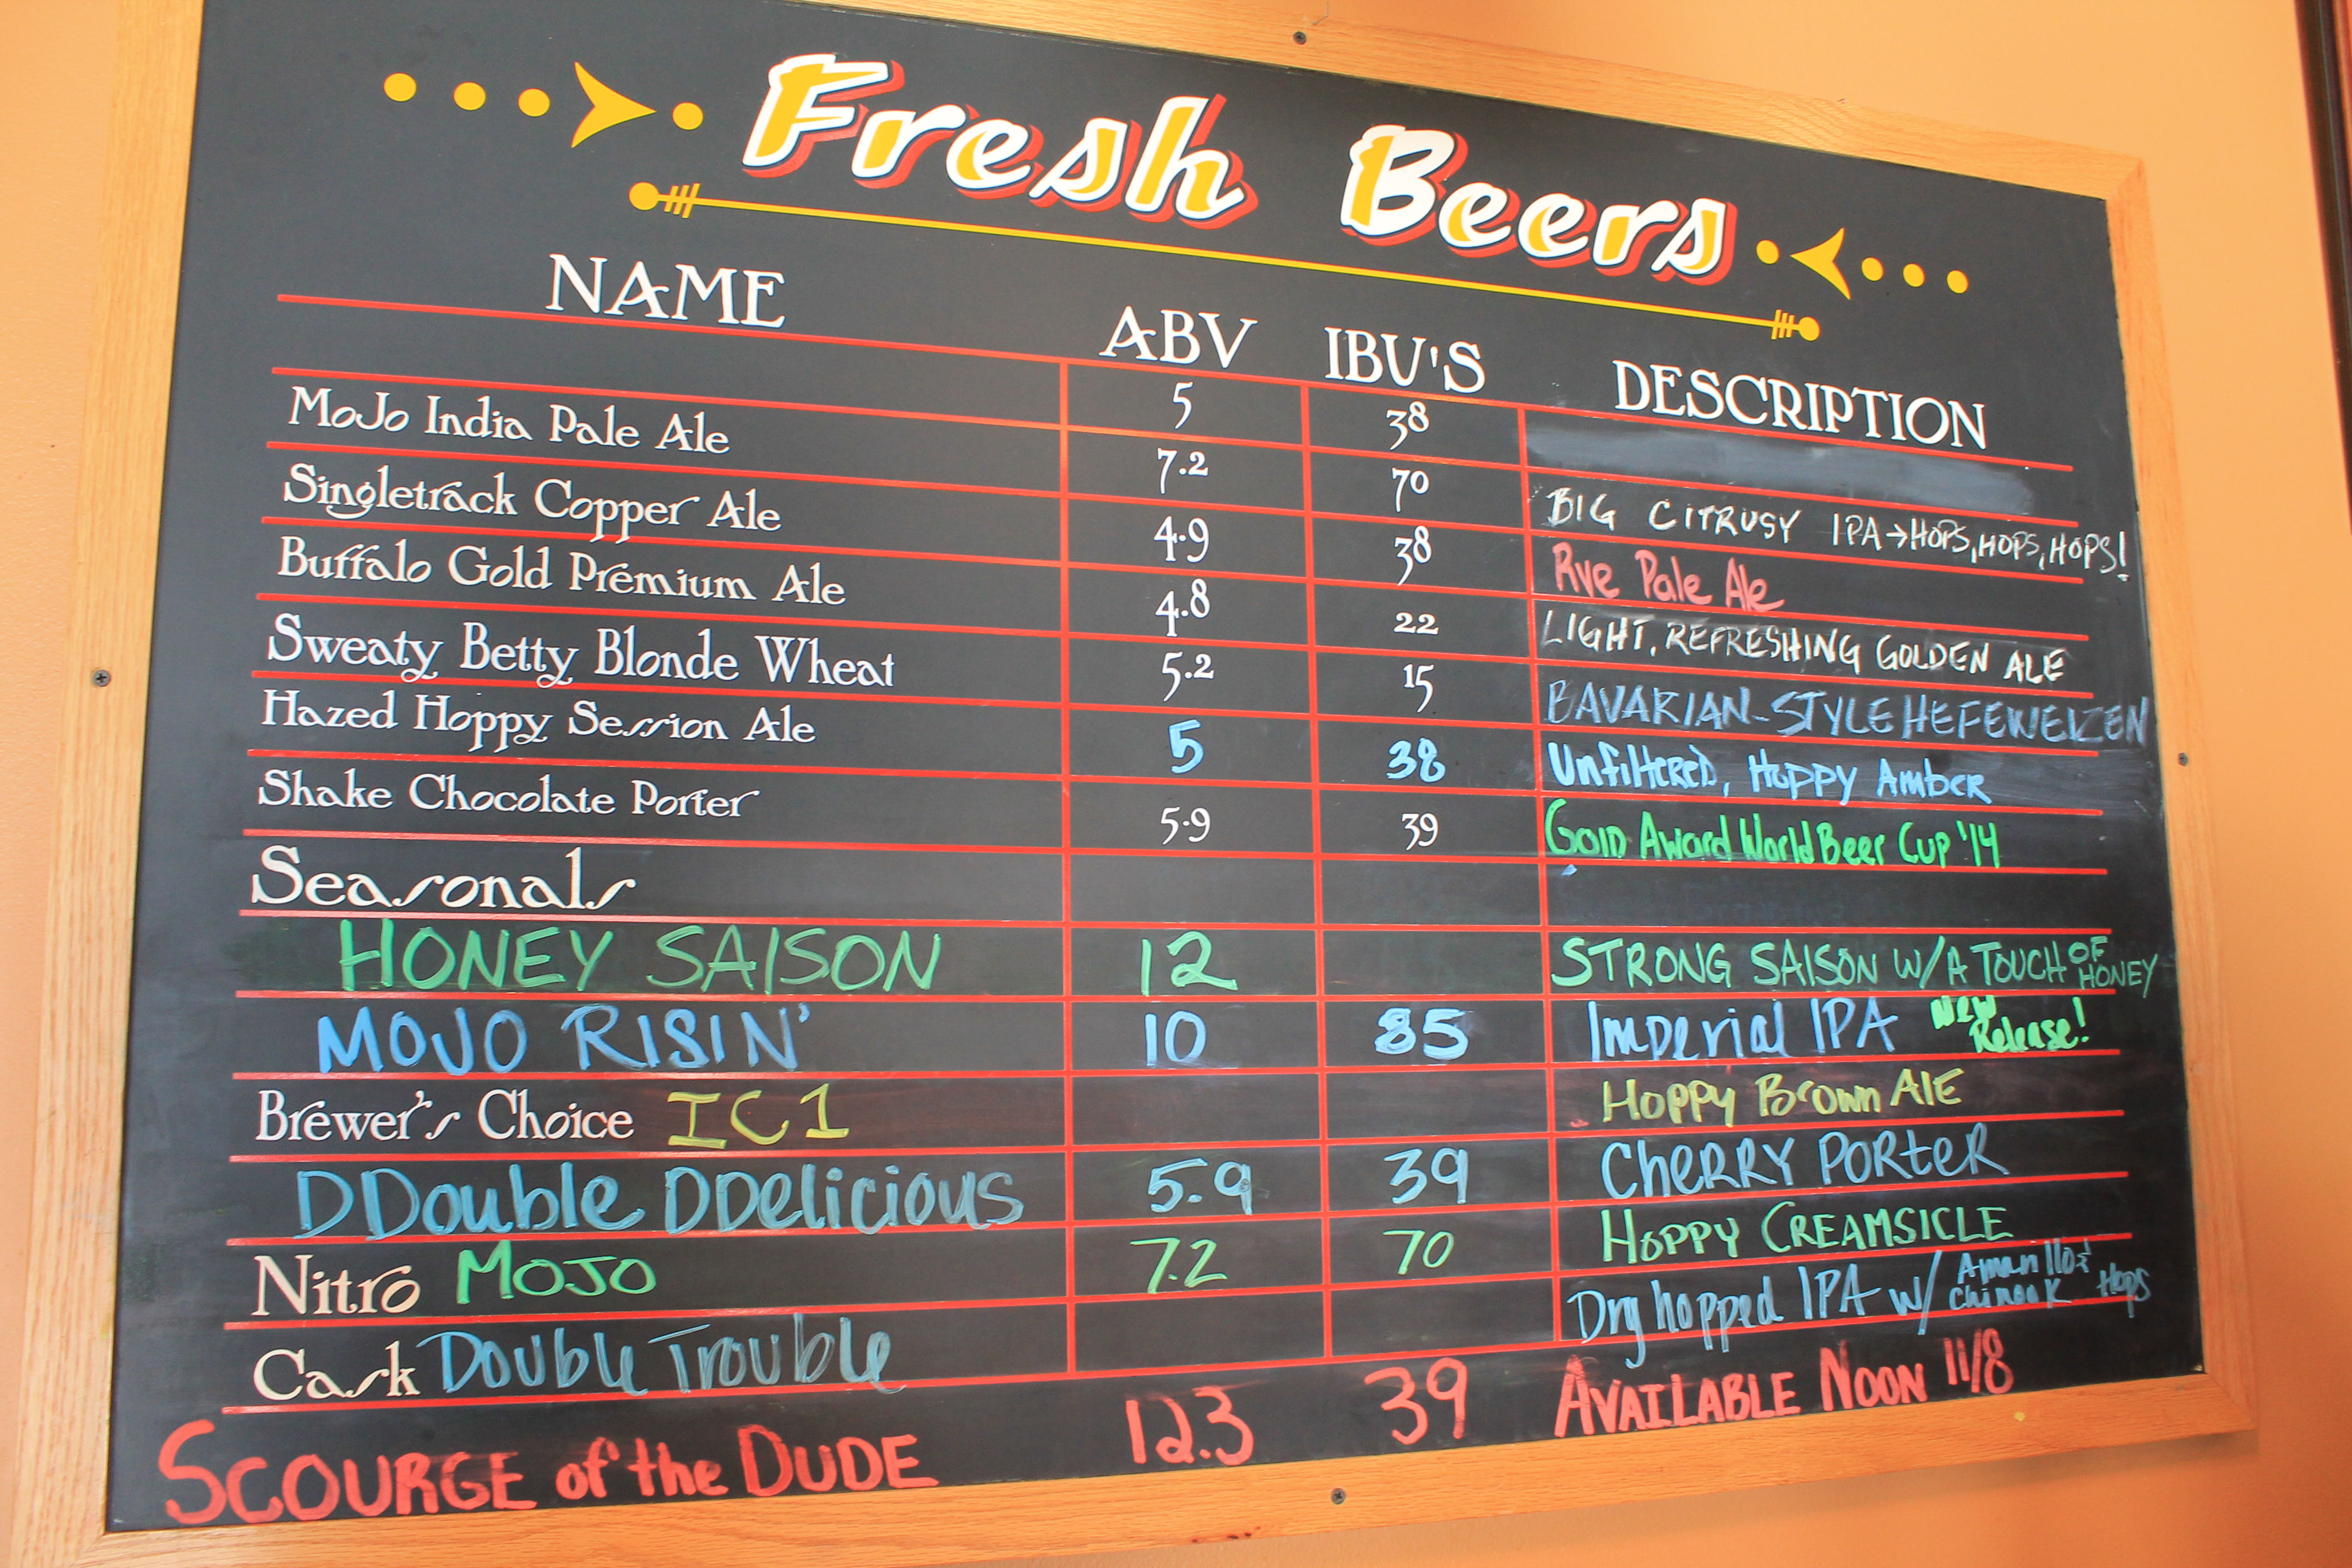 Fresh Beers
NAME ABV IBU'S DESCRIPTION
5 38
MoJo India Pale Ale 7.2 70 BIG CITRUSY IPA→HOPS, HOPS, HOPS!
Singletrack Copper Ale 4.9 38 Rye Pale Ale
Buffalo Gold Premium Ale 4.8 22 LIGHT, REFRESHING GOLDEN ALE
Sweaty Betty Blonde Wheat 5.2 15 BAVARIAN-STYLE HEFEWEIZEN
Hazed Hoppy Session Ale 5 38 Unfiltered, Hoppy Amber
Shake Chocolate Porter 5.9 39 Gold Award World Beer Cup '14
Seasonals
HONEY SAISON 12 STRONG SAISON W/A TOUCH OF HONEY
MOJO RISIN' 10 85 Imperial IPA New Release!
Brewer's Choice IC1 Hoppy Brown Ale
DDouble DDelicious 5.9 39 CHERRY PORTER
Nitro MOJO 7.2 70 HOPPY CREAMSICLE
Cask Double Trouble Dry hopped IPA w/ Amarillo & Chinook Hops
SCOURGE of the DUDE 12.3 39 AVAILABLE NOON 11/8